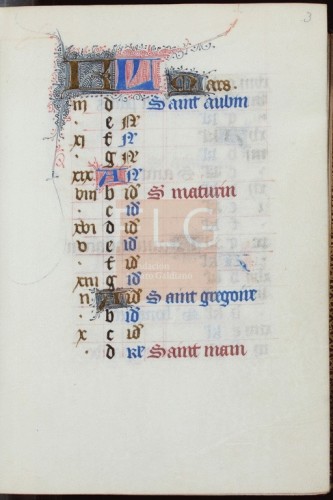 3
KL Mars.
iii d Saint aubin
e N
xi f N
g N
xix A N
viii b id S maturin
c id
xvi d id
v e id
f id
xiii g id
ii A id Saint gregoire
b id
x c id
d kl Saint
FLG